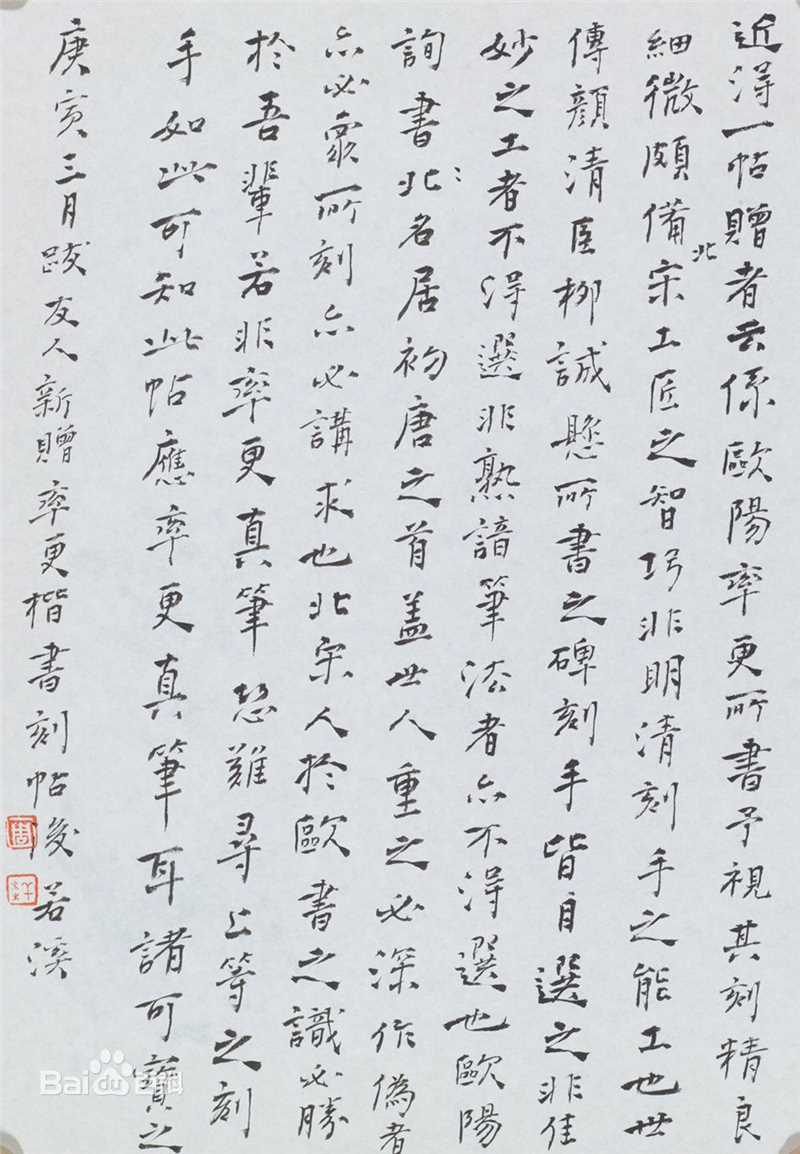 近得一帖贈者云係歐陽率更所書予視其刻精良
細微頗備北宋工匠之智巧非明清刻手之能工也世
傳顏清臣柳誠懸所書之碑刻手皆自選之非佳
妙之工者不得選非熟諳筆法者亦不得選也歐陽
詢書北名居初唐之首蓋世人重之必深作偽者
亦必衆所刻亦必講求也北宋人於歐書之識必勝
於吾輩若非率更真筆恐難尋上等之刻
手如此可知此帖應率更真筆耳諸可寶之
庚寅三月跋友人新贈率更楷書刻帖後若溪
周
Bai百科